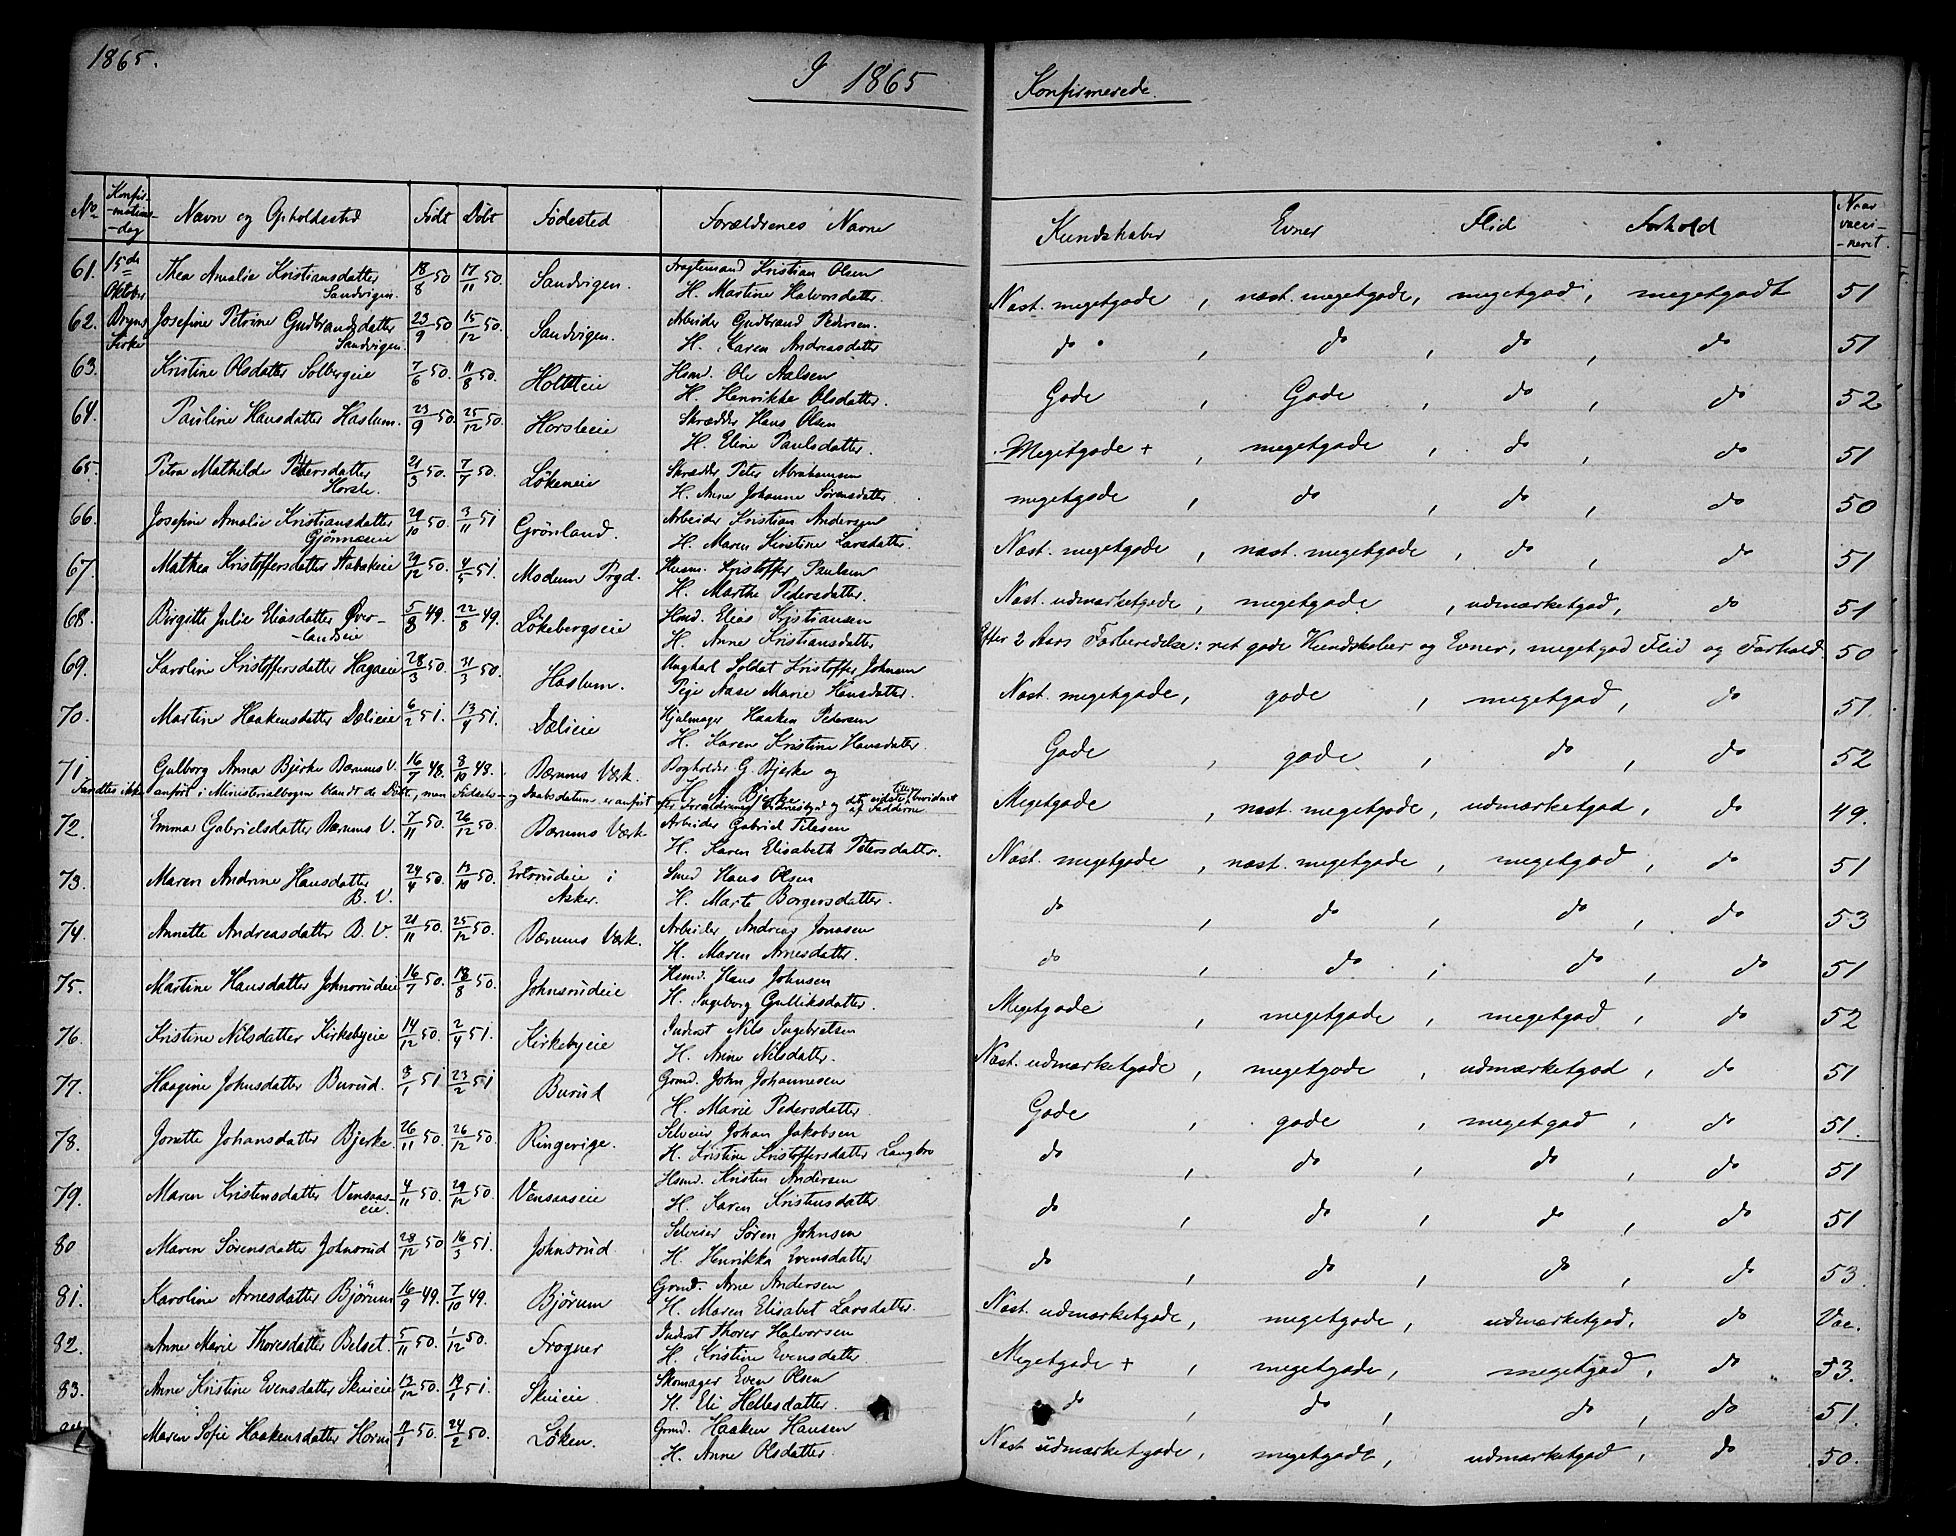 1865.
I 1865
Konfirmerede.
No Konfir-
-mations-
-dag Navn og Opholdssted Født Døbt Fødested Forældrenes Navne Kundskaber Evner Flid Forhold Naar
vacci-
neret.
61. 15de Oktober Thea Amalie Kristiansdatter 18/8 50 17/11 50. Sandvigen. Fragtemand Kristian Olsen Næst. megetgode, næst. megetgode, megetgod, megetgodt 51
Sandvigen. H. Martine Halvorsdatter.
62. Bryns Kirke Josefine Petrine Gudbrandsdatter 23/9 50 15/12 50. Sandvigen. Arbeider Gudbrand Pedersen. do, do, do, do 51
Sandvigen. H. Karen Andreasdatter
63. Kristine Olsdatter Solbergeie 7/6 50. 11/8 50. Holtsteie Hsmd. Ole Aslsen Gode, Gode, do, do 52
H. Henrikke Olsdatter.
64. Pauline Hansdatter Haslum. 23/9 50. 25/12 50. Horsleie Skrædder Hans Olsen Megetgode +, megetgode, do, do 51
H. Eline Paulsdatter.
65. Petra Mathilde Petersdatter 21/3 50. 7/7 50. Løkeneie Skrædder Peter Abrahamsen megetgode, do, do, do 50
Horsle. H. Anne Johanne Sørensdatter.
66. Josefine Amalie Kristiansdatter 29/10 50. 3/11 51 Grönland. Arbeider Kristian Andersen Næst. megetgode, næst. megetgode, do, do 51
Gjönnæseie H. Maren Kirstine Larsdatter.
67. Mathea Kristoffersdatter Stabekeie 29/12 50. 4/5 51. Modum Prgd. Husm. Kristoffer Paulsen Næst. udmærketgode, megetgode, udmærketgod, do 51
H. Marthe Pedersdatter.
68. Birgitte Julie Eliasdatter Øver- 5/8 49. 22/8 49. Løkebergseie Hsmd. Elias Kristiansen Efter 2 Aars Forberedelse: ret gode Kundskaber og Evner, megetgod Flid og Forhold. 50
-landeie H. Anne Kristiansdatter
69. Karoline Kristoffersdatter Hagaeie 28/3 50. 31/3 50. Haslum. Ungkarl Soldat Kristoffer Johnsen Næst. megetgode, gode, megetgod, do 51.
Pige Aase Marie Hansdatter.
70. Martine Haakensdatter Dælieie 6/2 51. 13/4 51. Dælieie Hjulmager Haaken Pedersen Gode, gode, do, do 52
H. Karen Kristine Hansdatter.
71. Gulborg Anna Bjerke Bærums V. 16/7 48. 8/10 48. Bærums Værk. Bogholder G. Bjerke og Megetgode, næst. megetgode, udmærketgod, do 49.
H. A. Bjerke
Fandtes ikke anført i Ministerialbogen blandt de Døbte, men Fødsels- og Daabsdatum er anført
72. Emma Gabrielsdatter Bærums V. 7/11 50. 26/12 50. Bærums Værk Arbeider Gabriel Tilesen Næst. megetgode, næst. megetgode, megetgod, do 51
H. Karen Elisabeth Petersdatter.
73. Maren Andrine Hansdatter 24/4 50. 17/10 50. i Smed Hans Olsen do, do, do, do 53
B. V. Asker. H. Marte Borgersdatter.
74. Annette Andreasdatter B. V. 21/11 50. 25/12 50. Bærums Værk. Arbeider Andreas Jonasen do, do, do, do 51
H. Maren Arnesdatter.
75. Martine Hansdatter Johnsrudeie 16/7 50. 18/8 50. Johnsrudeie Hsmd. Hans Johnsen Megetgode, megetgode, megetgod, do 52
H. Ingeborg Gulliksdatter.
76. Kristine Nilsdatter Kirkebyeie 14/12 50. 2/4 51. Kirkebyeie Inderst Nils Ingebretsen Næst. udmærketgode, megetgode, udmærketgod, do 51
H. Anne Nilsdatter.
77. Haagine Johnsdatter Burud. 3/1 51 23/2 51 Burud Grmd. John Johannesen Gode, gode, megetgod, do 51.
H. Marie Pedersdatter.
78. Jonette Johansdatter Bjerke 26/11 50. 26/12 50. Ringerige. Selveier Johan Jakobsen do, do, do, do 51
H. Kristine Kristoffersdatter Langbro
79. Maren Kristensdatter Vensaas- 4/11 50. 29/12 50. Vensaaseie Hsmd. Kristen Andersen do, do, do, do 51
eie. H. Karen Kristensdatter
80 Maren Sørensdatter Johnsrud 28/12 50 16/3 51. Johnsrud Selveier Sören Johnsen do, do, do, do 53.
H. Henrikka Evensdatter
81. Karoline Arnesdatter Bjørum 16/9 49. 7/10 49. Bjørum Grmd. Arne Andersen Næst. udmærketgode, megetgode, udmærketgod, do Vac.
H. Maren Elisabet Larsdatter.
82. Anne Marie Thoresdatter Belset. 5/11 50. 1/12 50. Frogner Inderst Thorer Halvorsen Megetgode +, megetgode, megetgod, do 53.
H. Kristine Evensdatter
83. Anne Kristine Evensdatter Skuieie 13/12 50. 19/1 51. Skuieie Skomager Even Olsen do, do, do, do 51.
H. Eli Hellesdatter.
Maren Sofie Haakensdatter Horni 11/1 50. 24/2 50. Løken. Grmd. Haaken Hansen Næst udmærketgode, megetgode, udmærketgod, do 50.
H. Anne Olsdatter.